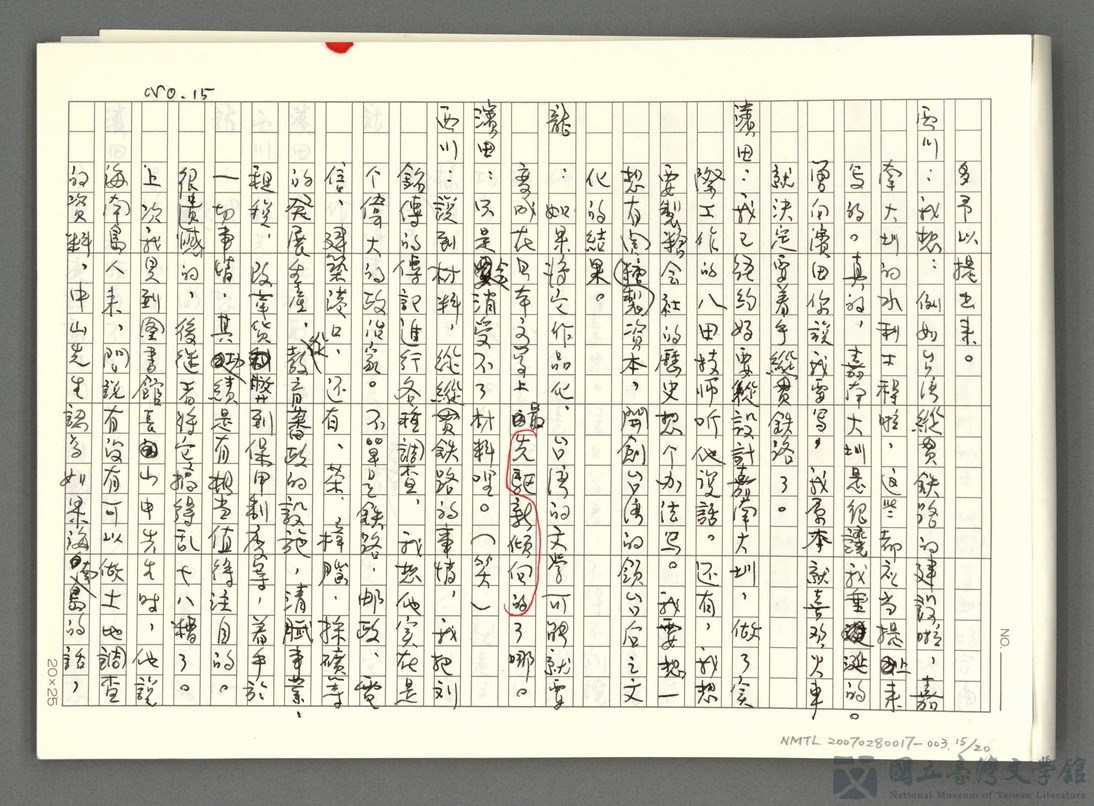 NO.15
多予以提出来。
西川：我想：例如台湾縱貫鉄路的建設啦，嘉
南大圳的水利工程啦，这些都应当提出来
写的。真的，嘉南大圳是很讓我垂涎的。
曽向濱田你說我要写，我原本就喜欢火車
就決定要着手縱貫鉄路了。
濱田：我已経約好要縱設計嘉南大圳，做了实
際工作的八田技師听他說話。还有，我想
要製糖会社的歷史想个办法写。我要想一
想有関糖製資本，開創台湾的領台后之文
化的結果。
龍：如果将它作品化，台湾的文学可能就要
变成在日本文学上最先駆新傾向的了哪。
濱田：只是会消受不了材料哩。（笑）
西川：說到材料，従縱貫鉄路的事情，我把刘
銘傳的傳記進行各種調查，我想他实在是
个偉大的政治家。不單是鉄路，郵政、電
信、建築港口，还有，茶、樟腦，採礦等
的発展生産，教育番政的設施，清賦事業、
租稅，改革貨幣到保甲制度等，着手於
一切事情，其功績是有相当值得注目的。
很遺憾的，後継者将它搞得乱七八糟了。
上次我見到图書館長山中先生时，他說
海南島人来，問說有沒有可以做土地調查
的資料，中山先生認为如果海南島的話，
NO.
20×25
NMTL 20070280017-003.15/20
國立臺灣文學館
National Museum of Taiwan Literature